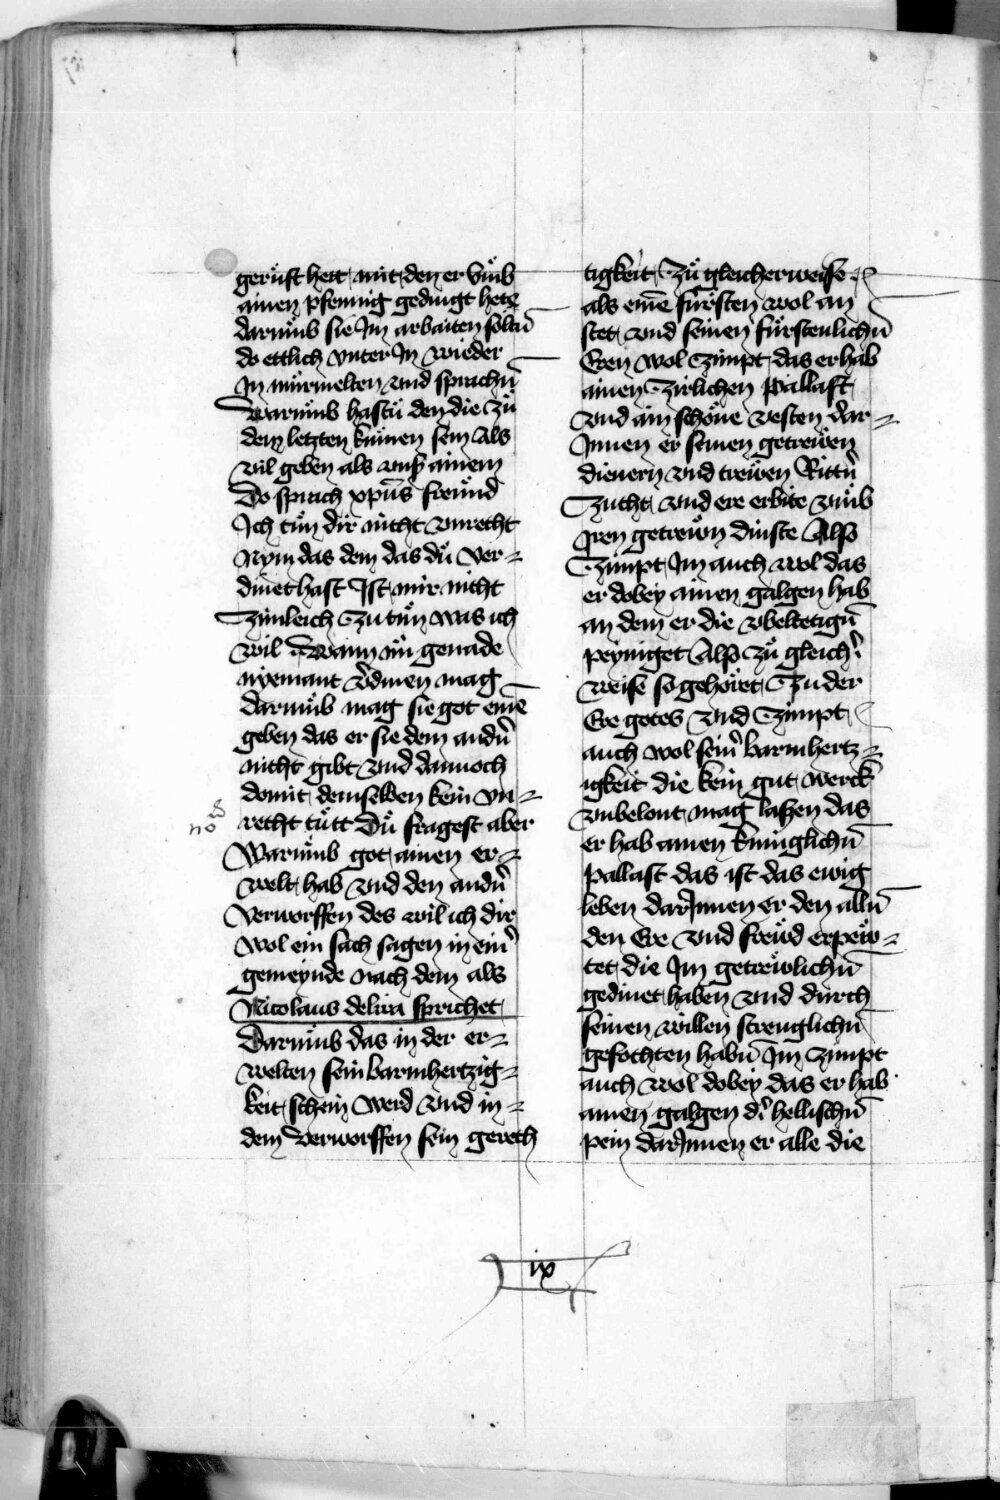 gerüft hett mit den er vmb
ainen pfennig gedingt hete
darumb sie Im arbaiten soltē
do ettlich vnter In wieder
In mürmelten vnd sprachn̄
Warumb hastu den die zu
dem letzten kumen sein Als
vil geben als vnß ainem
Do sprach xp̄us freund
Ich tun dir nicht vnrecht
Nym das dem das du ver-
dinet hast Ist mir nicht
Zimleich Zu tun was ich
wil Wann nu genade
nyemant v̓dinen mag
darumb mag sie got einē
geben das er sie dem andn̓
nicht gibt vnd dannoch
domit demselben kein vn-
recht tutt Du fragest aber
Warumb got ainen er-
welt hab vnd den andn̓
Verworffen des wil ich dir
wol ein sach sagen in ein̓
gemeynde nach dem als
Nicolaus delira sprichet
Darumb das in der er-
welten sein barmhertzig-
keit schein werd vnd in
dem verworffen sein gerech
tigkeit Zu gleicherweise
als einē fürsten wol an
stet vnd seinen fürstenlichn̄
Eren wol Zimpt das er hab
ainen Zirlichen Pallast
vnd ain schöne vesten dar-
Innen er seinen getrewen
dienern vnd trewen Rittn̓
Zucht vnd ere erbite vmb
Iren getrewn dinste Also
Zimpt Im auch wol das
er dobey ainen galgen hab
an dem er die vbeltetign̄
peyniget Also zu gleich̓
weise so gehöret Zu der
Ere gotes vnd Zimpt
auch wol sein̓ barmhertz-
igkeit die kein gut werck
vnbelont mag laßen das
er hab ainen kuniglichn̄
pallast das ist das ewig
leben darInnen er den alln̄
den Ere vnd frewd erpew-
tet die Im getrewlichn̄
gedinet haben vnd durch
seinen willen strenglichn̄
gefochten habn̄ Im zimpt
auch wol dobey das er hab
ainen galgen d̓ hellischn̄
pein darInnen er alle die
ix